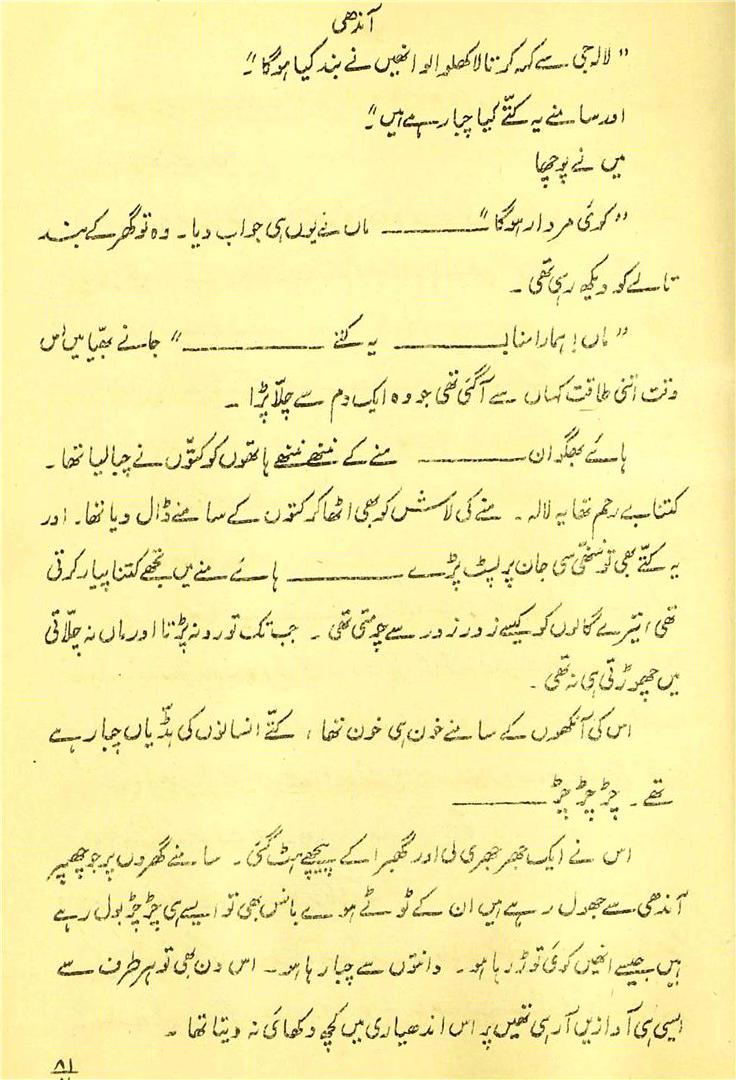 آندھی
"لالہ جی سے کہہ کر تالا کھلوا لو انھیں نے بند کیا ہو گا"۔
اور سامنے یہ کتّے کیا چبا رہے ہیں"۔
میں نے پوچھا
"کوئی مردار ہو گا" ——— ماں نے یوں ہی جواب دیا۔ وہ تو گھر کے بند
تالے کو دیکھ رہی تھی۔
"ماں! ہمارا منا ب ——— یہ کتے ———" جانے بھیّا میں اس
وقت اتنی طاقت کہاں سے آ گئی تھی جو وہ ایک دم سے چلّا پڑا۔
ہائے بھگوان ——— منے کے ننھے ننھے ہاتھوں کو کتّوں نے چبا لیا تھا۔
کتنا بے رحم تھا یہ لالہ۔ منے کی لاش کو بھی اٹھا کر کتوں کے سامنے ڈال دیا تھا۔ اور
یہ کتّے بھی تو ننھی سی جان پر لپٹ پڑے ——— ہائے منے میں تجھے کتنا پیار کرتی
تھی! تیرے گالوں کو کیسے زور زور سے چومتی تھی۔ جب تک تو رو نہ پڑتا اور ماں نہ چلّاتی
میں چھوڑتی ہی نہ تھی۔
اس کی آنکھوں کے سامنے خون ہی خون تھا، کتّے انسانوں کی ہڈّیاں چبا رہے
تھے۔ چڑ چڑ چڑ ———
اس نے ایک جھرجھری لی اور گھبرا کے پیچھے ہٹ گئی۔ سامنے گھروں پر جو چھپر
آندھی سے جھول رہے ہیں ان کے ٹوٹے ہوے بانس بھی تو ایسے ہی چڑ چڑ بول رہے
ہیں جیسے انھیں کوئی توڑ رہا ہو۔ دانتوں سے چبا رہا ہو۔ اس دن بھی تو ہر طرف سے
ایسی ہی آوازیں آ رہی تھیں پر اس اندھیاری میں کچھ دکھائی نہ دیتا تھا۔
۸۱